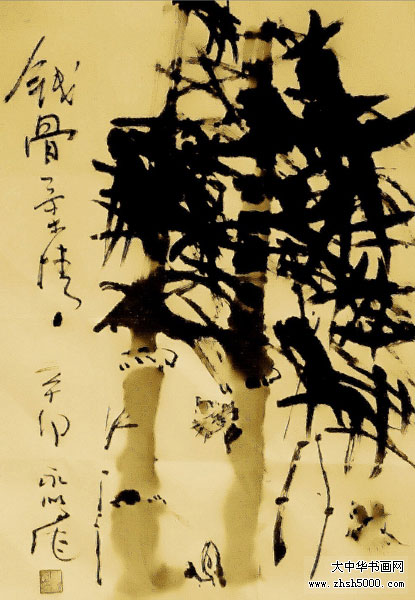 铁骨柔情
辛卯
作
大中华书画网
www.zhsh5000.com